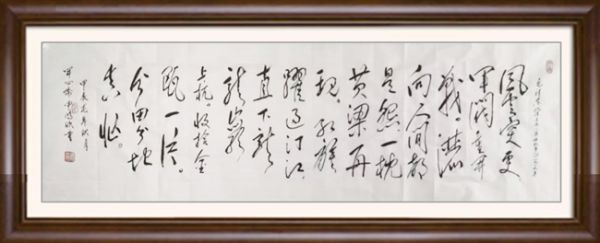 風雲突變
軍閥重開
戰洒
向人間都
是怨一枕
黄粱再
現红旗
躍過汀江
直下龍
岩
上杭收拾金
甌一片
分田分地
真忙
甲辰龙年秋月